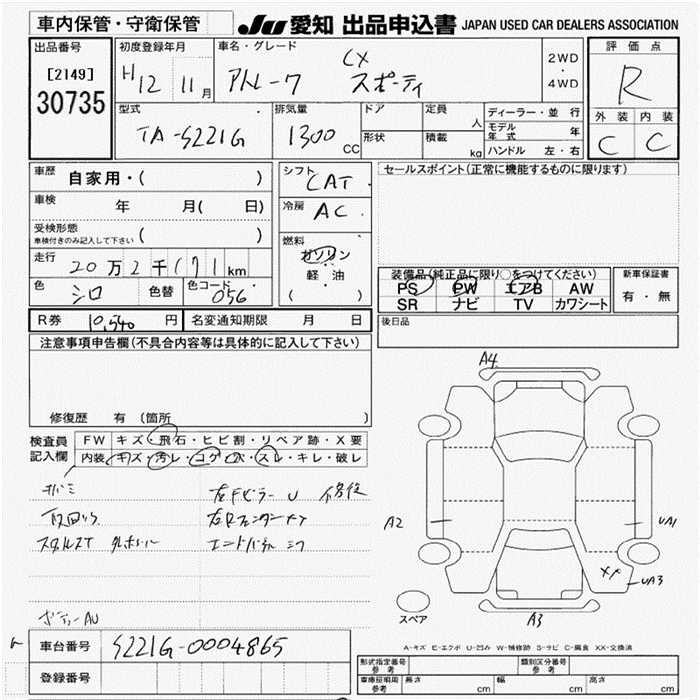 車内保管・守衛保管
JU 愛知 出品申込書 JAPAN USED CAR DEALERS ASSOCIATION
出品番号
[2149]
30735
初度登録年月
H12 11月
車名・グレード
CX
スポーティ
2WD
・
4WD
評価点
R
外装 内装
C C
型式
TA-S221G
排気量
1300 CC
ドア
形状
定員
人
積載
kg
ディーラー・並行
モデル年式 年
ハンドル 左・右
車歴 自家用・( )
車検 年 月( 日)
受検形態
車検付きのみ記入して下さい ( )
走行 20万2千171km
色 シロ 色替 色コード 056
シフト
CAT
冷房 AC
燃料
ガソリン
・
軽・油
( )
セールスポイント(正常に機能するものに限ります)
装備品(純正品に限り○をつけてください)
PS PW エアB AW
SR ナビ TV カワシート
新車保証書
有・無
R券 10,540 円 名変通知期限 月 日
後日品
注意事項申告欄(不具合内容等は具体的に記入して下さい)
修復歴 有 (箇所 )
検査員記入欄
FW キズ・飛石・ヒビ割・リペア跡・X要
内装 キズ・汚レ・コゲ・穴・スレ・キレ・破レ
左Fピラー U 修復
ボディーAU
A4
A2
UA1
XX
UA3
A3
スペア
A-キズ E-エクボ U-凹み W-補修跡 S-サビ C-腐食 XX-交換済
車台番号 S221G-0004865
登録番号
形式指定番号
参考
類別区分番号
参考
車庫証明用
参考
長さ cm 幅 cm 高さ cm